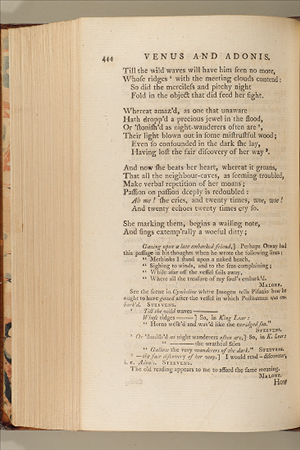 444 VENUS AND ADONIS.
Till the wild waves will have him ſeen no more,
Whoſe ridges with the meeting clouds contend:
So did the mercileſs and pitchy night
Fold in the object that did feed her ſight.
Whereat amaz'd, as one that unaware
Hath dropp'd a precious jewel in the flood,
Or 'ſtoniſh'd as night-wanderers often are,
Their light blown out in ſome miſtruſtful wood;
Even ſo confounded in the dark ſhe lay,
Having loſt the fair diſcovery of her way.
And now ſhe beats her heart, whereat it groans,
That all the neighbour-caves, as ſeeming troubled,
Make verbal repetition of her moans;
Paſſion on paſſion deeply is redoubled:
Ah me! ſhe cries, and twenty times, woe, woe!
And twenty echoes twenty times cry ſo.
She marking them, begins a wailing note,
And ſings extemp'rally a woeful ditty;
Gazing upon a late embarked friend,] Perhaps Otway had
this paſſage in his thoughts when he wrote the following lines:
" Methinks I ſtand upon a naked beach,
" Sighing to winds, and to the ſeas complaining;
" While afar off the veſſel ſails away,
" Where all the treaſure of my ſoul's embark'd.
MALONE.
See the ſcene in Cymbeline where Imogen tells Piſanio how he
ought to have gazed after the veſſel in which Poſthumus was
STEEVENS.
Till the wild waves ———
Whoſe ridges ———] So, in King Lear:
" Horns welk'd and wav'd like the enridged ſea."
STEEVENS.
Or 'ſtoniſh'd as night wanderers often are,] So, in K. Lear:
" ——— the wrathful ſkies
" Gallow the very wanderers of the dark." STEEVENS.
— the fair diſcovery of her way.] I would read — diſcoverer,
i. e. Adonis. STEEVENS.
The old reading appears to me to afford the ſame meaning.
MALONE.
How